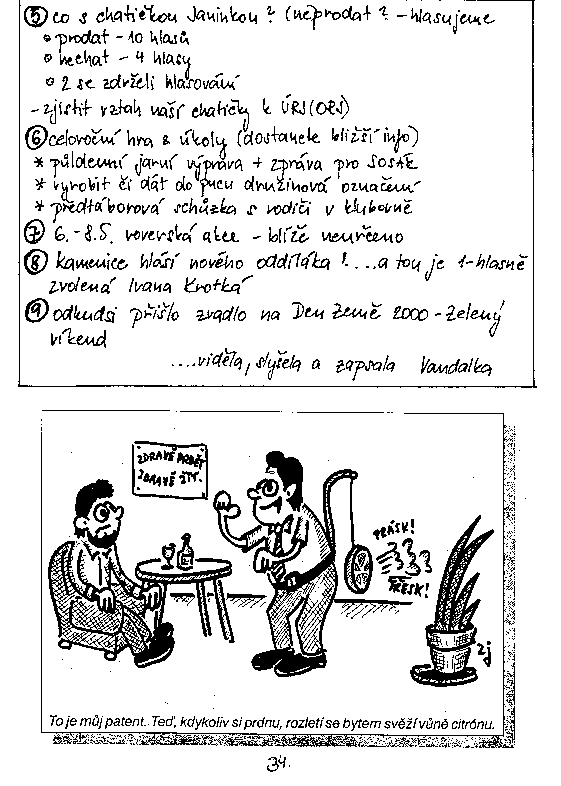 ⑤ co s chatičkou Janinkou? (ne)prodat? - hlasujeme
o prodat - 10 hlasů
o nechat - 4 hlasy
o 2 se zdrželi hlasování
- zjistit vztah naší chatičky k ÚRS (ORS)
⑥ celoroční hra & úkoly (dostanete bližší info)
* půldenní jarní výprava + zpráva pro
* vyrobit či dát do pucu družinová označení
* předtáborová schůzka s rodiči v klubovně
⑦ 6.-8.5. roverská akce - blíže neurčeno
⑧ Kamenice hlásí nového oddíláka!....a tou je 1-hlasně
zvolená Ivana Krotká
⑨ odkudsi přišlo zvadlo na Den Země 2000 - Zelený
víkend
....viděla, slyšela a zapsala Vandalka
ZDRAVĚ PRDĚT
ZDRAVĚ ŽÍT.
PRÁSK!
TŘESK!
zj
To je můj patent. Teď, kdykoliv si prdnu, rozletí se bytem svěží vůně citrónu.
34.